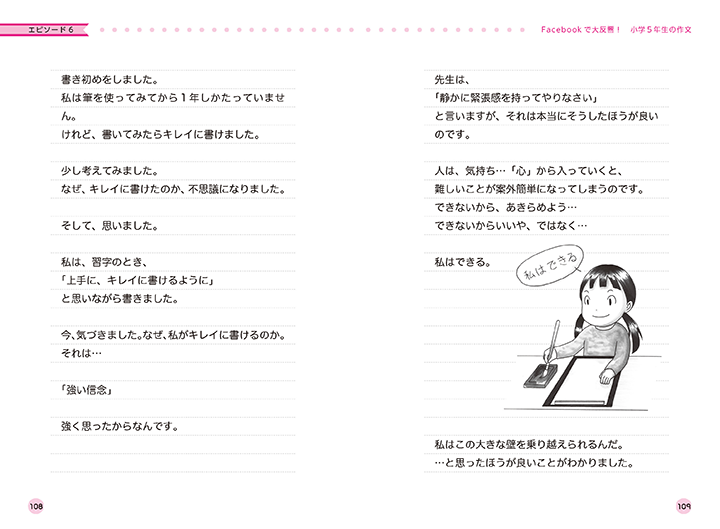 エピソード 6
Facebook で大反響！　小学5年生の作文
書き初めをしました。
私は筆を使ってみてから1年しかたっていませ
ん。
けれど、書いてみたらキレイに書けました。
少し考えてみました。
なぜ、キレイに書けたのか、不思議になりました。
そして、思いました。
私は、習字のとき、
「上手に、キレイに書けるように」
と思いながら書きました。
今、気づきました。なぜ、私がキレイに書けるのか。
それは…
「強い信念」
強く思ったからなんです。
108
先生は、
「静かに緊張感を持ってやりなさい」
と言いますが、それは本当にそうしたほうが良い
のです。
人は、気持ち…「心」から入っていくと、
難しいことが案外簡単になってしまうのです。
できないから、あきらめよう…
できないからいいや、ではなく…
私はできる。
私はできる
私はこの大きな壁を乗り越えられるんだ。
…と思ったほうが良いことがわかりました。
109